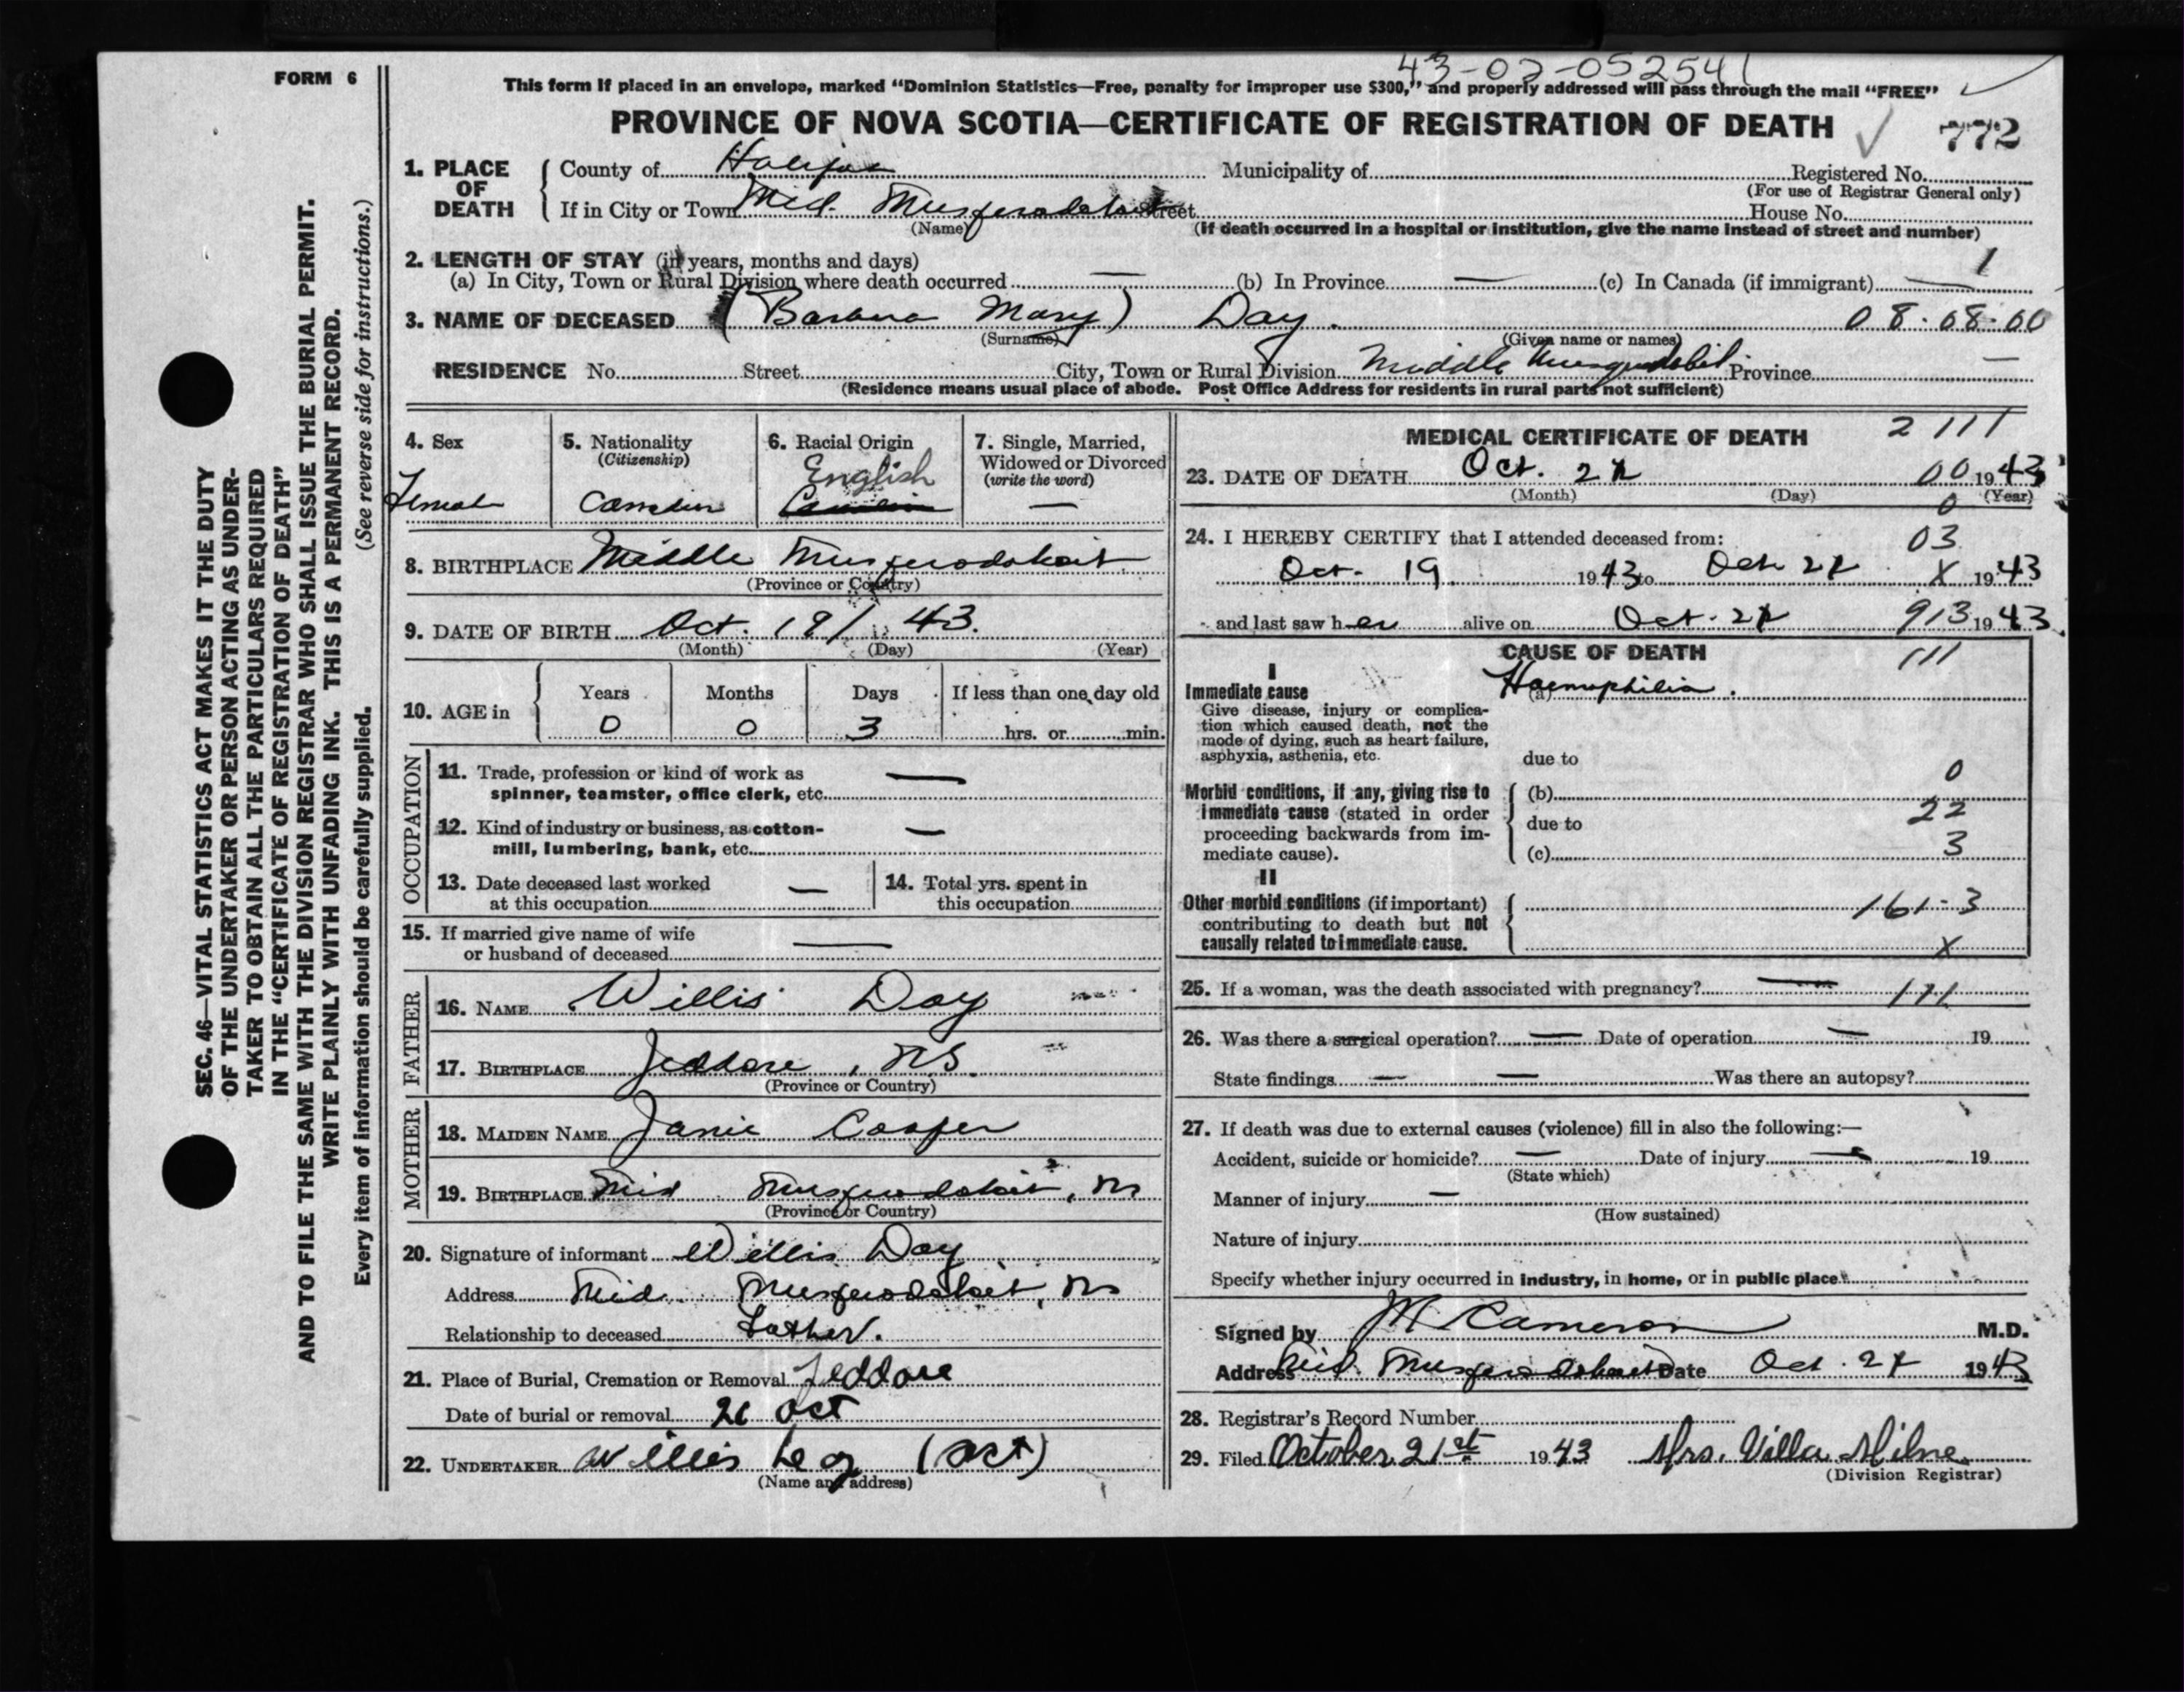 43-02-052541
FORM 6
This form if placed in an envelope, marked "Dominion Statistics—Free, penalty for improper use $300," and properly addressed will pass through the mail "FREE"
PROVINCE OF NOVA SCOTIA—CERTIFICATE OF REGISTRATION OF DEATH 772
1. PLACE OF DEATH County of Halifax Municipality of Registered No.
(For use of Registrar General only)
If in City or Town Mid. Musquodoboit Street House No.
(Name) (If death occurred in a hospital or institution, give the name instead of street and number)
2. LENGTH OF STAY (in years, months and days) 1
(a) In City, Town or Rural Division where death occurred — (b) In Province — (c) In Canada (if immigrant) —
3. NAME OF DECEASED (Barbara Mary) Day. 08-08-00
(Surname) (Given name or names)
RESIDENCE No. Street City, Town or Rural Division Middle Musquodobit Province —
(Residence means usual place of abode. Post Office Address for residents in rural parts not sufficient)
4. Sex
Female
5. Nationality
(Citizenship)
Canadian
6. Racial Origin
English
7. Single, Married,
Widowed or Divorced
(write the word)
—
8. BIRTHPLACE Middle Musquodoboit
(Province or Country)
9. DATE OF BIRTH Oct. 19/ 43.
(Month) (Day) (Year)
10. AGE in Years Months Days If less than one day old
0 0 3 hrs. or min.
OCCUPATION
11. Trade, profession or kind of work as —
spinner, teamster, office clerk, etc.
12. Kind of industry or business, as cotton- —
mill, lumbering, bank, etc.
13. Date deceased last worked —
at this occupation
14. Total yrs. spent in
this occupation
15. If married give name of wife —
or husband of deceased
FATHER
16. NAME Willis Day
17. BIRTHPLACE Jeddore, NS.
(Province or Country)
MOTHER
18. MAIDEN NAME Janie Cooper
19. BIRTHPLACE Mid Musquodoboit, NS
(Province or Country)
20. Signature of informant Willis Day
Address Mid. Musquodoboit, NS
Relationship to deceased Father.
21. Place of Burial, Cremation or Removal Jeddore
Date of burial or removal Oct
22. UNDERTAKER Willis (act)
(Name and address)
MEDICAL CERTIFICATE OF DEATH 2111
23. DATE OF DEATH Oct. 00 1943
(Month) (Day) (Year)
0
24. I HEREBY CERTIFY that I attended deceased from: 03
Oct. 19 1943 to Oct X 1943
and last saw her alive on Oct. 913 1943
CAUSE OF DEATH 111
I
Immediate cause (a) Haemophilia.
Give disease, injury or complica-
tion which caused death, not the
mode of dying, such as heart failure,
asphyxia, asthenia, etc. due to
0
Morbid conditions, if any, giving rise to (b)
immediate cause (stated in order due to 22
proceeding backwards from im-
mediate cause). (c) 3
II
Other morbid conditions (if important) 161-3
contributing to death but not
causally related to immediate cause. X
25. If a woman, was the death associated with pregnancy? — 111
26. Was there a surgical operation? — Date of operation — 19
State findings — — Was there an autopsy?
27. If death was due to external causes (violence) fill in also the following:—
Accident, suicide or homicide? — Date of injury — 19
(State which)
Manner of injury —
(How sustained)
Nature of injury
Specify whether injury occurred in industry, in home, or in public place.
Signed by Cameron M.D.
Address Mid. Musquodoboit Date Oct. 1943
28. Registrar's Record Number
29. Filed October 21st 1943 Mrs. Villa Milne
(Division Registrar)
SEC. 46—VITAL STATISTICS ACT MAKES IT THE DUTY
OF THE UNDERTAKER OR PERSON ACTING AS UNDER-
TAKER TO OBTAIN ALL THE PARTICULARS REQUIRED
IN THE "CERTIFICATE OF REGISTRATION OF DEATH"
AND TO FILE THE SAME WITH THE DIVISION REGISTRAR WHO SHALL ISSUE THE BURIAL PERMIT.
WRITE PLAINLY WITH UNFADING INK. THIS IS A PERMANENT RECORD.
Every item of information should be carefully supplied. (See reverse side for instructions.)